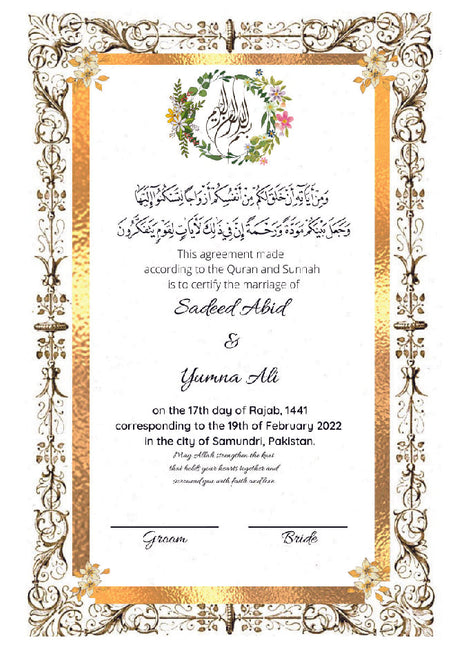 بسم الله الرحمن الرحيم
وَمِنْ آيَاتِهِ أَنْ خَلَقَ لَكُم مِّنْ أَنفُسِكُمْ أَزْوَاجًا لِّتَسْكُنُوا إِلَيْهَا
وَجَعَلَ بَيْنَكُم مَّوَدَّةً وَرَحْمَةً إِنَّ فِي ذَٰلِكَ لَآيَاتٍ لِّقَوْمٍ يَتَفَكَّرُونَ
This agreement made
according to the Quran and Sunnah
is to certify the marriage of
Sadeed Abid
&
Yumna Ali
on the 17th day of Rajab, 1441
corresponding to the 19th of February 2022
in the city of Samundri, Pakistan.
May Allah strengthen the knot
that holds your hearts together and
surround you with faith and love
Groom Bride